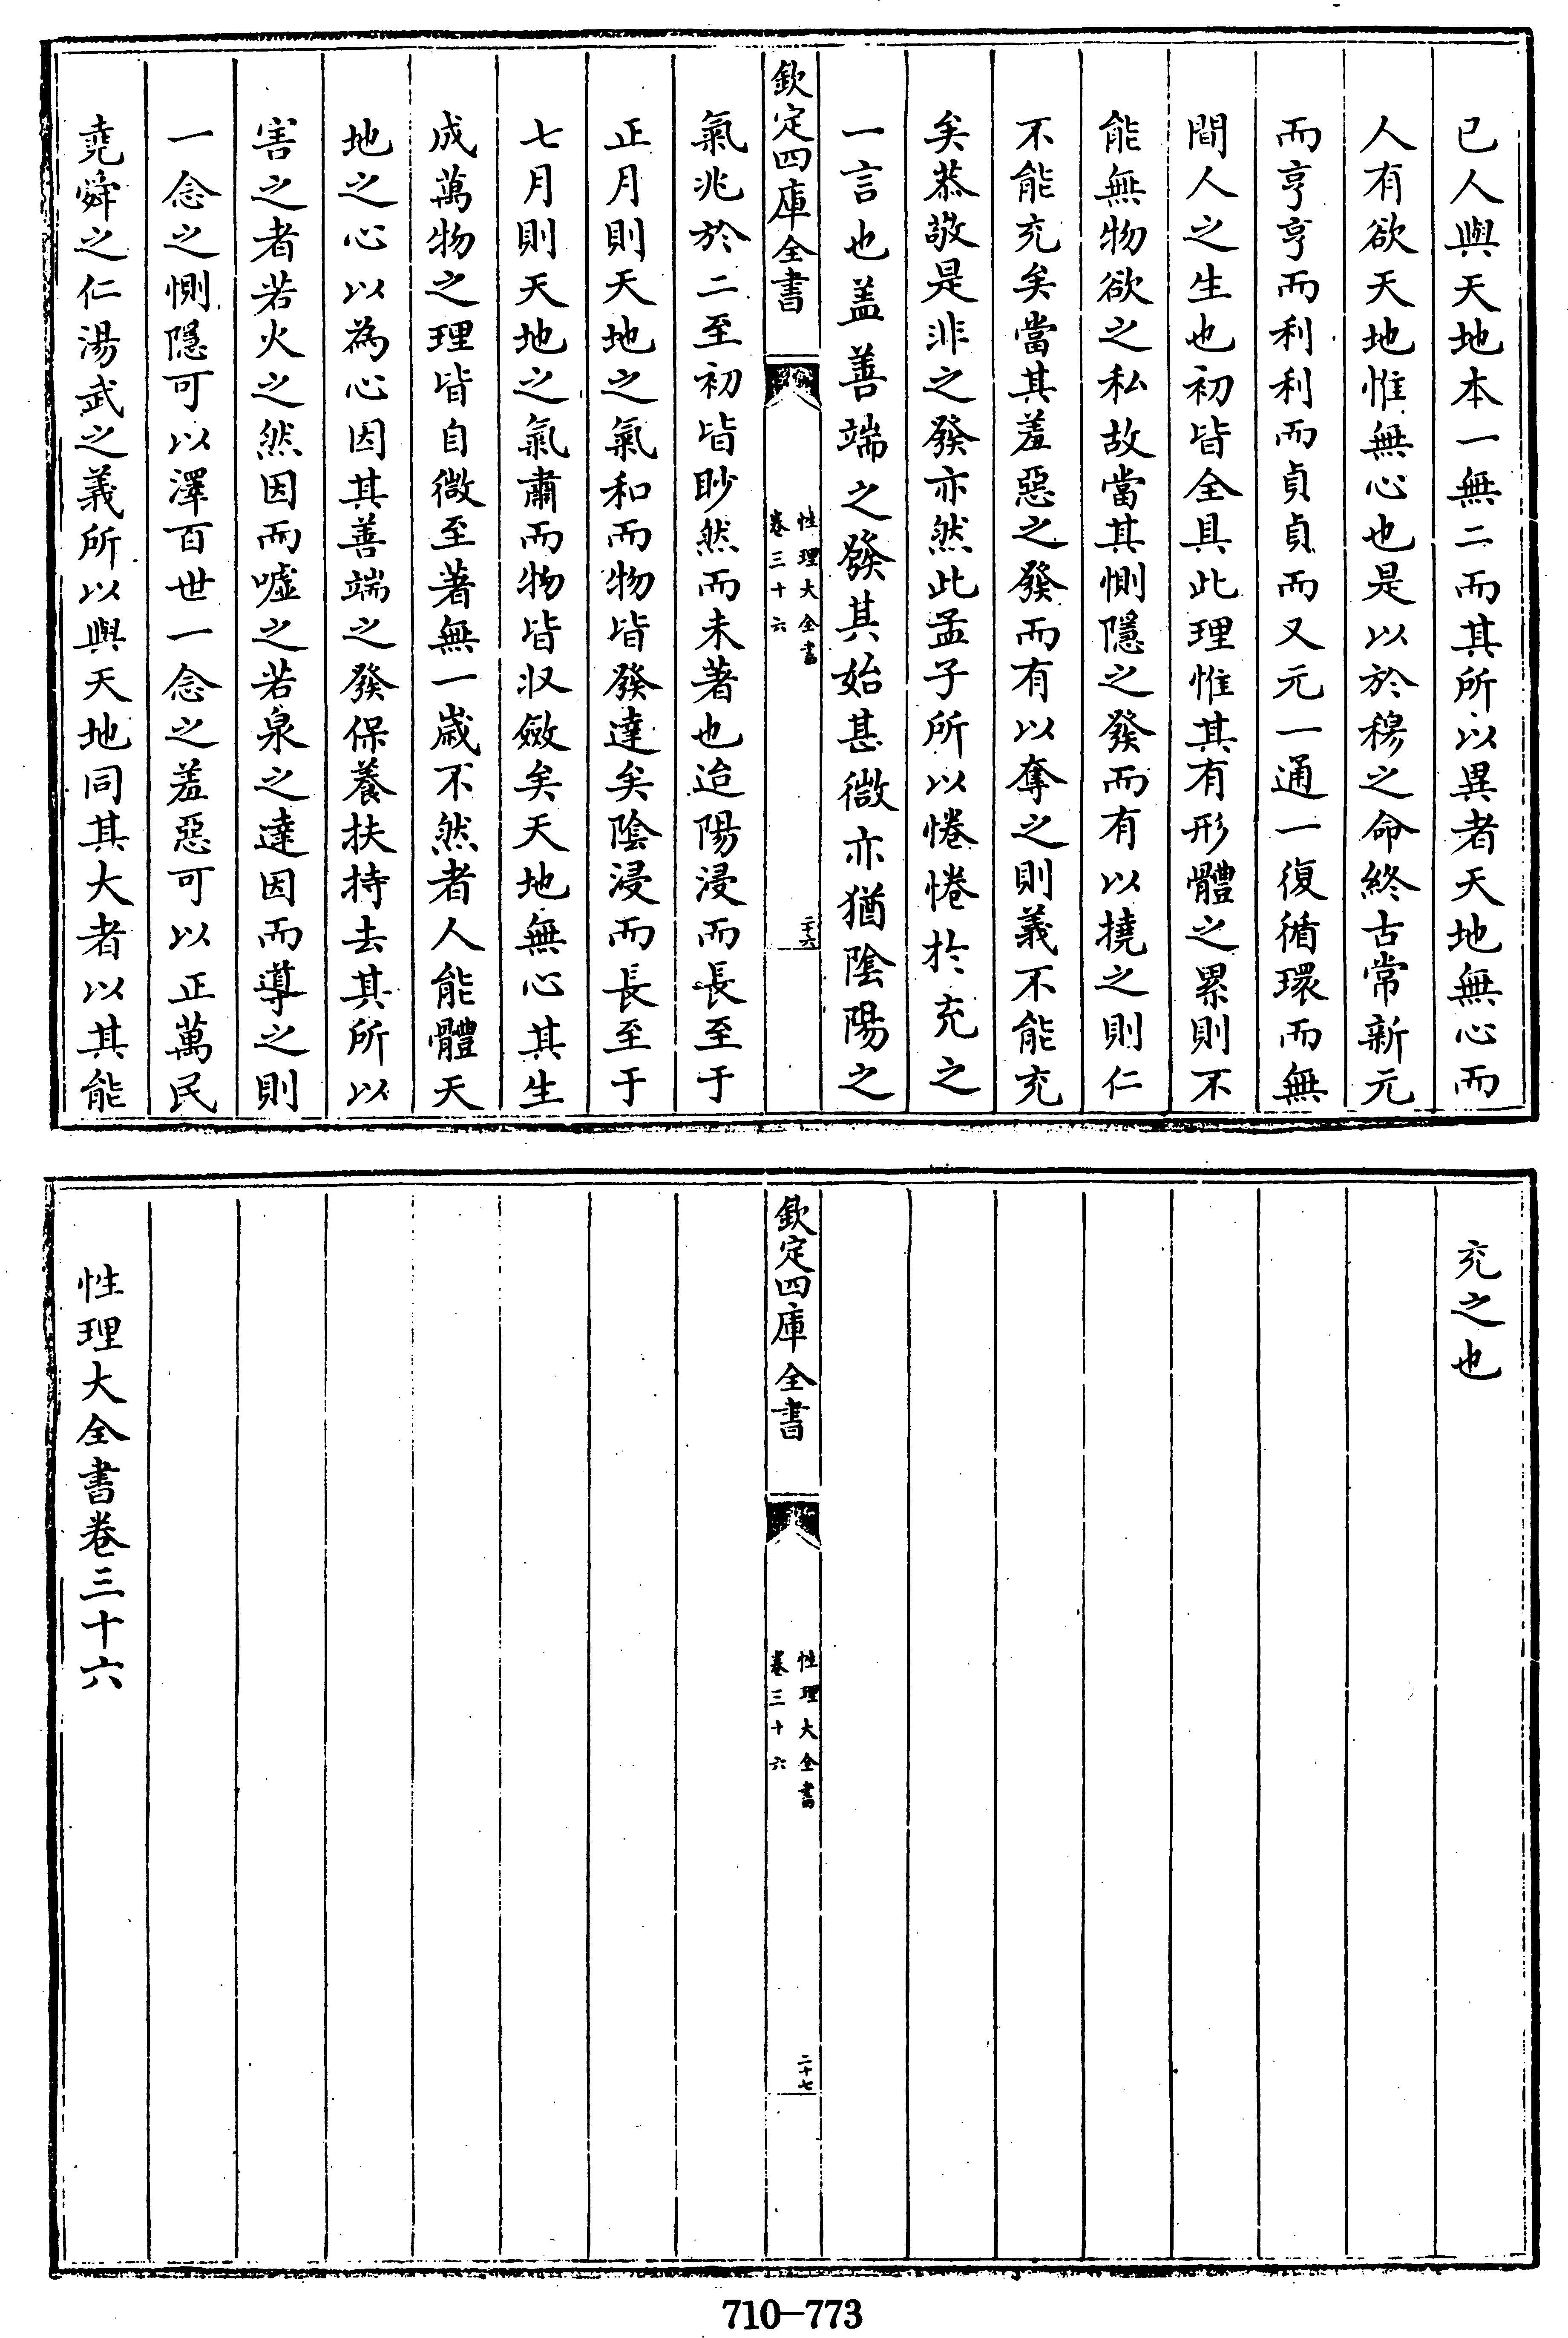 已人與天地本一無二而其所以異者天地無心而
人有欲天地惟無心也是以於穆之命終古常新元
而亨亨而利利而貞貞而又元一通一復循環而無
間人之生也初皆全具此理惟其有形體之累則不
能無物欲之私故當其惻隱之發而有以撓之則仁
不能充矣當其羞惡之發而有以奪之則義不能充
矣恭敬是非之發亦然此孟子所以惓惓於充之
一言也盖善端之發其始甚微亦猶陰陽之
欽定四庫全書
性理大全書
卷三十六
二十六
氣兆於二至初皆眇然而未著也迨陽浸而長至于
正月則天地之氣和而物皆發達矣陰浸而長至于
七月則天地之氣肅而物皆収斂矣天地無心其生
成萬物之理皆自微至著無一歲不然者人能體天
地之心以為心因其善端之發保養扶持去其所以
害之者若火之然因而噓之若泉之達因而導之則
一念之惻隱可以澤百世一念之羞惡可以正萬民
堯舜之仁湯武之義所以與天地同其大者以其能
充之也
欽定四庫全書
性理大全書
卷三十六
二十七
性理大全書卷三十六
710-773